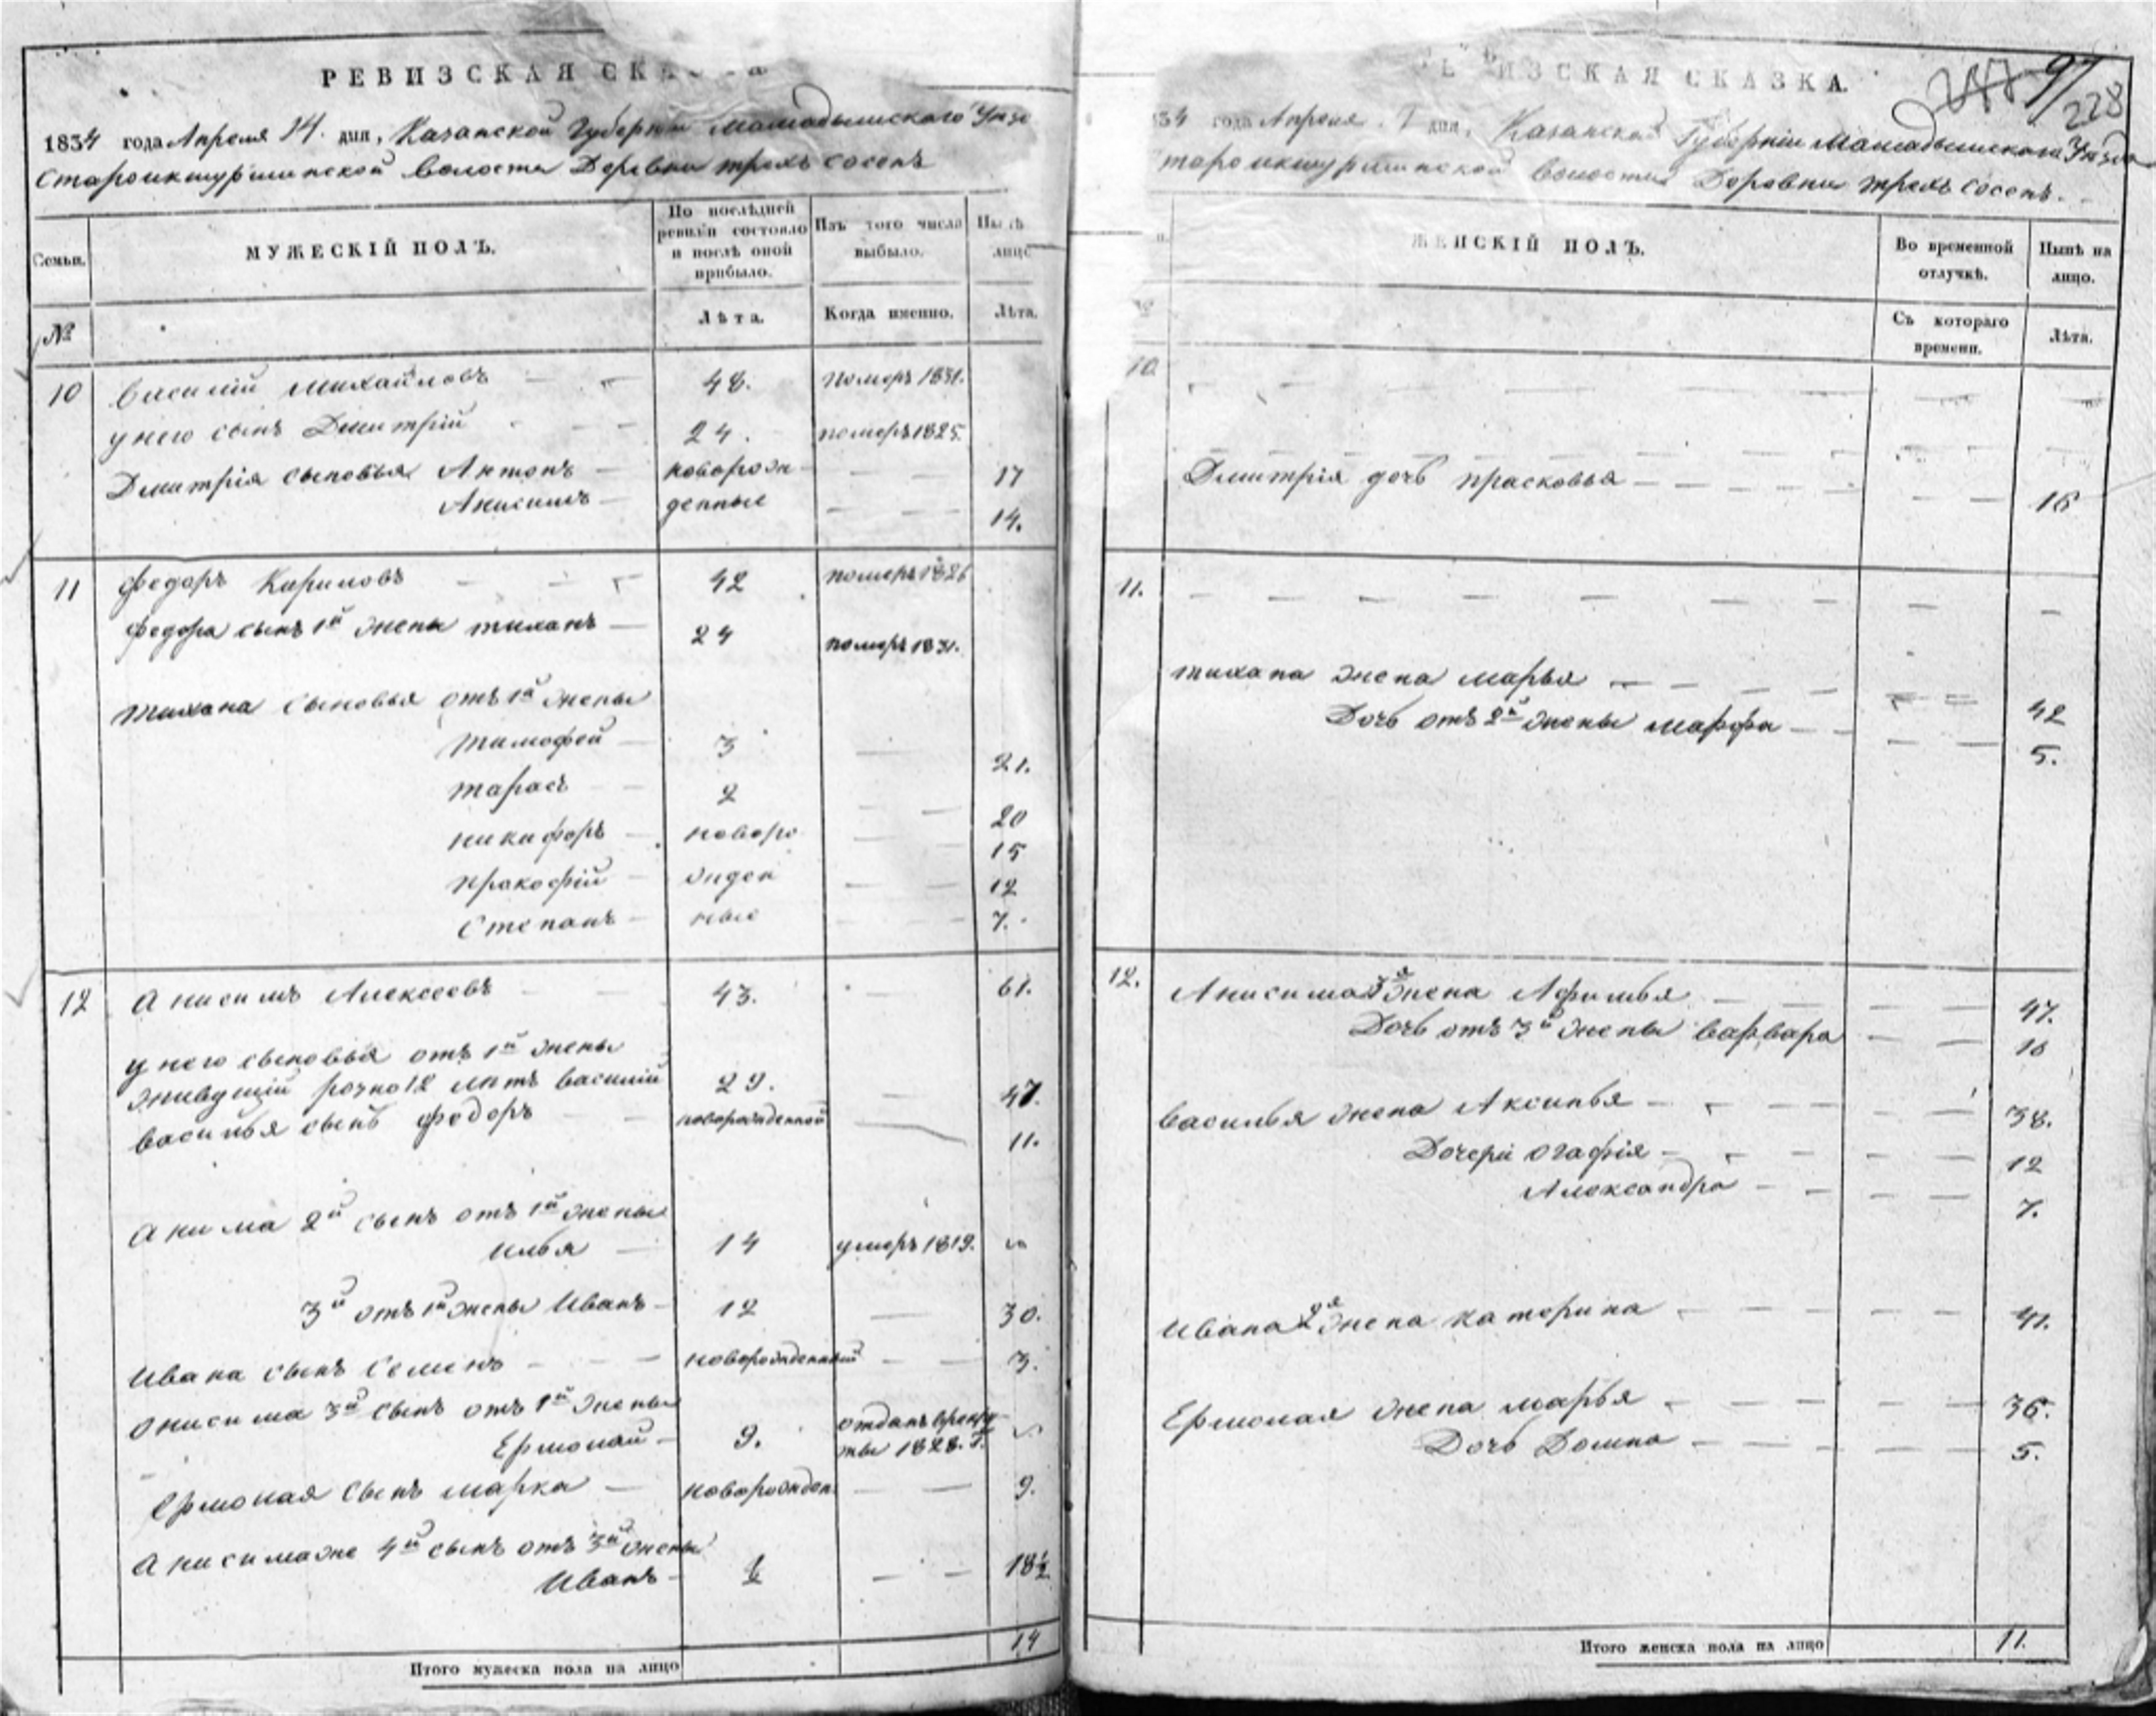 РЕВИЗСКАЯ СКА
1834 года Апреля 14. дня, Казанской Губернии Мамадышского Уезд
Староикшурминской волости Деревни трехъ сосенъ
Семьи.
МУЖЕСКІЙ ПОЛЪ.
По послѣдней ревизіи состояло и послѣ оной прибыло.
Изъ того числа выбыло.
Ны лицо
№
Лѣта.
Когда именно.
Лѣта.
10 Василій Михайловъ 48. померъ 1831.
у него сынъ Дмитрій 24. померъ 1825.
Дмитрія сыновья Антонъ новорож 17
Анисимъ денные 14.
11 Федоръ Кириловъ 42 померъ 1826
Федора сынъ 1й жены тиханъ 24 померъ 1831.
тихана сыновья отъ 1й жены
тимофей 3 21.
тарасъ 2 20
никифоръ новоро 15
прокофій жден 12
Степанъ ные 7.
12 Анисимъ Алексеевъ 43. 61.
у него сыновья отъ 1й жены
живущій розно 12 летъ василій 29. 47.
василья сынъ федоръ новорожденной 11.
Анима 2й сынъ отъ 1й жены
Илья 14 умеръ 1819.
3й отъ 1й жены Иванъ 12 30.
Ивана сынъ Семенъ новорожденный 3.
Онисима 3й сынъ отъ 1й жены
Ермолай 9. отданъ врекру
ты 1828. г.
Ермолая сынъ марка новорожден. 9.
Анисима же 4й сынъ отъ 3й жены
Иванъ ½ 18½
Итого мужеска пола на лицо 14
ИЗСКАЯ СКАЗКА.
97
228
34 года Апреля дня, Казанской Губерніи Мамадышскаго Уезда
тароикшурминской волости Деревни трехъ сосенъ.
ЖЕНСКІЙ ПОЛЪ.
Во временной отлучкѣ.
Нынѣ на лицо.
Съ котораго времени.
Лѣта.
10.
Дмитрія дочь прасковья 16
11.
тихана жена марья 42
Дочь отъ 2й жены марфа 5.
12. Анисима 3я жена Афимья 47.
Дочь отъ 3й жены варвара 16
василья жена Аксинья 38.
Дочери огафія 12
Александра 7.
Ивана 2я жена катерина 41.
Ермолая жена марья 36.
Дочь Домна 5.
Итого женска пола на лицо 11.